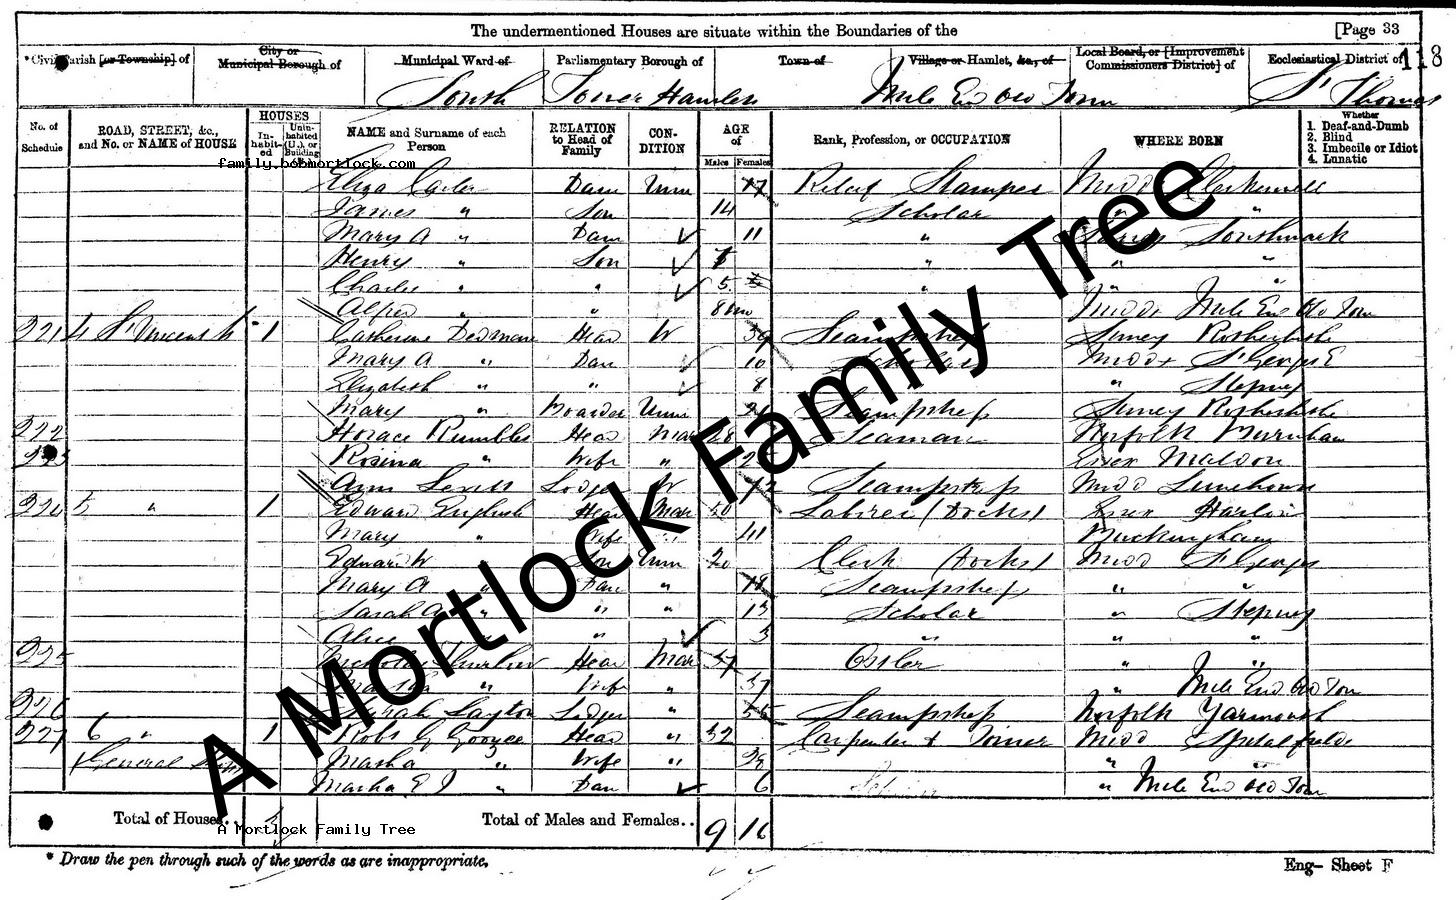 The undermentioned Houses are situate within the Boundaries of the [Page 33
* Civil Parish [or Township] of City or Municipal Borough of Municipal Ward of Parliamentary Borough of Town of Village or Hamlet, &c., of Local Board, or [Improvement Commissioners District] of Ecclesiastical District of 118
South Tower Hamlets Mile End Old Town St Thomas
No. of Schedule ROAD, STREET, &c., and No. or NAME of HOUSE HOUSES Inhabited Uninhabited (U.), or Building NAME and Surname of each Person RELATION to Head of Family CONDITION AGE of Males Females Rank, Profession, or OCCUPATION WHERE BORN Whether 1. Deaf-and-Dumb 2. Blind 3. Imbecile or Idiot 4. Lunatic
family.bobmortlock.com
Eliza Daur Unm 17 Stamper Midd Clerkenwell
James " Son 14 Scholar " "
Mary A " Daur 11 " Surrey Southwark
Henry " Son 7 " " "
Charles " " 5 " "
Alfred " 8 mo Midd Mile End Old Town
221 4 St Vincent St 1 Catherine Dedman Head W 39 Surrey Rotherhithe
Mary A " Daur 10 Midd St George E
Elizabeth " " 8 " Stepney
Mary " Boarder Unm Sempstress Surrey Rotherhithe
222 Horace Rumbles Head Mar 28 Seaman Norfolk Burnham
223 Rosina " Wife " Essex Maldon
Ann Lodger W Sempstress Midd Limehouse
224 5 " 1 Edward English Head Mar 50 Labourer (Docks) Essex Harlow
Mary " Wife " Buckingham
Edward W Son Unm 20 Clerk (Docks) Midd St Georges
Mary A " Daur " 18 Sempstress " "
Sarah A " " 13 Scholar " Stepney
Alice " " 3 " " "
225 Head Mar Ostler " "
Martha " Wife " 37 " Mile End Old Town
226 Sarah Layton Lodger " 55 Sempstress Norfolk Yarmouth
227 6 " 1 Robt G Goozee Head " 32 Carpenter & Joiner Midd Spitalfields
(General Masha " Wife " " "
Masha E J " Daur 6 " Mile End Old Town
Total of Houses.. Total of Males and Females.. 9 16
A Mortlock Family Tree
* Draw the pen through such of the words as are inappropriate.
Eng- Sheet F
A Mortlock Family Tree